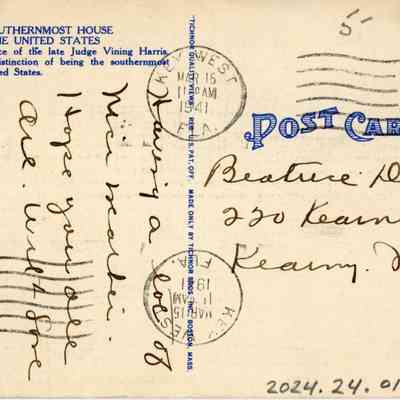 OUTHERNMOST HOUSE
HE UNITED STATES
ce of the late Judge Vining Harris,
distinction of being the southernmost
ed States.
Having a lot of
nice weather.
Hope you all
are. Will & Love
TICHNOR QUALITY VIEWS. REG. U.S. PAT. OFF. MADE ONLY BY TICHNOR BROS. INC. BOSTON, MASS.
KEY WEST
MAR 15
11 AM
1941
FLA.
KEY WEST
MAR 15
11 AM
1941
FLA.
5-
POST CAR
Beatrice D
220 Kearn
Kearny.
2024.24.01